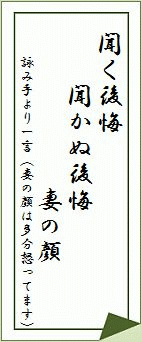 聞く後悔
聞かぬ後悔
妻の顔
詠み手より一言（妻の顔は多分怒ってます）